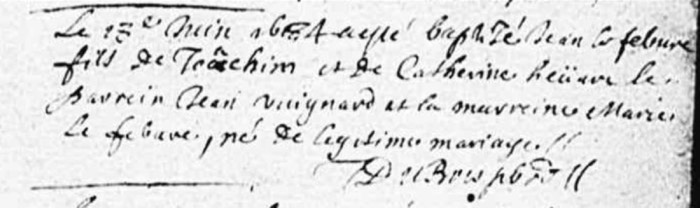 Le 13e Juin a esté baptizé Jean le febure
fils de Joachim et de Catherine heüare le
Parrein Jean vuignard et la marreine Marie
Le febure, né de legitime mariage //
DuBois pbre //